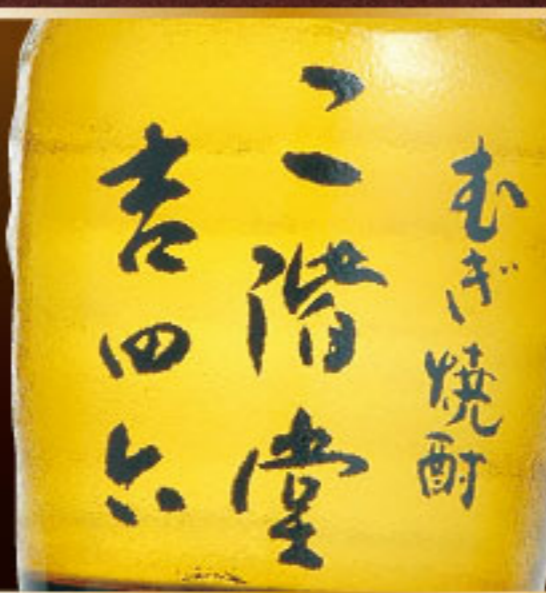 むぎ焼酎
二階堂
吉四六